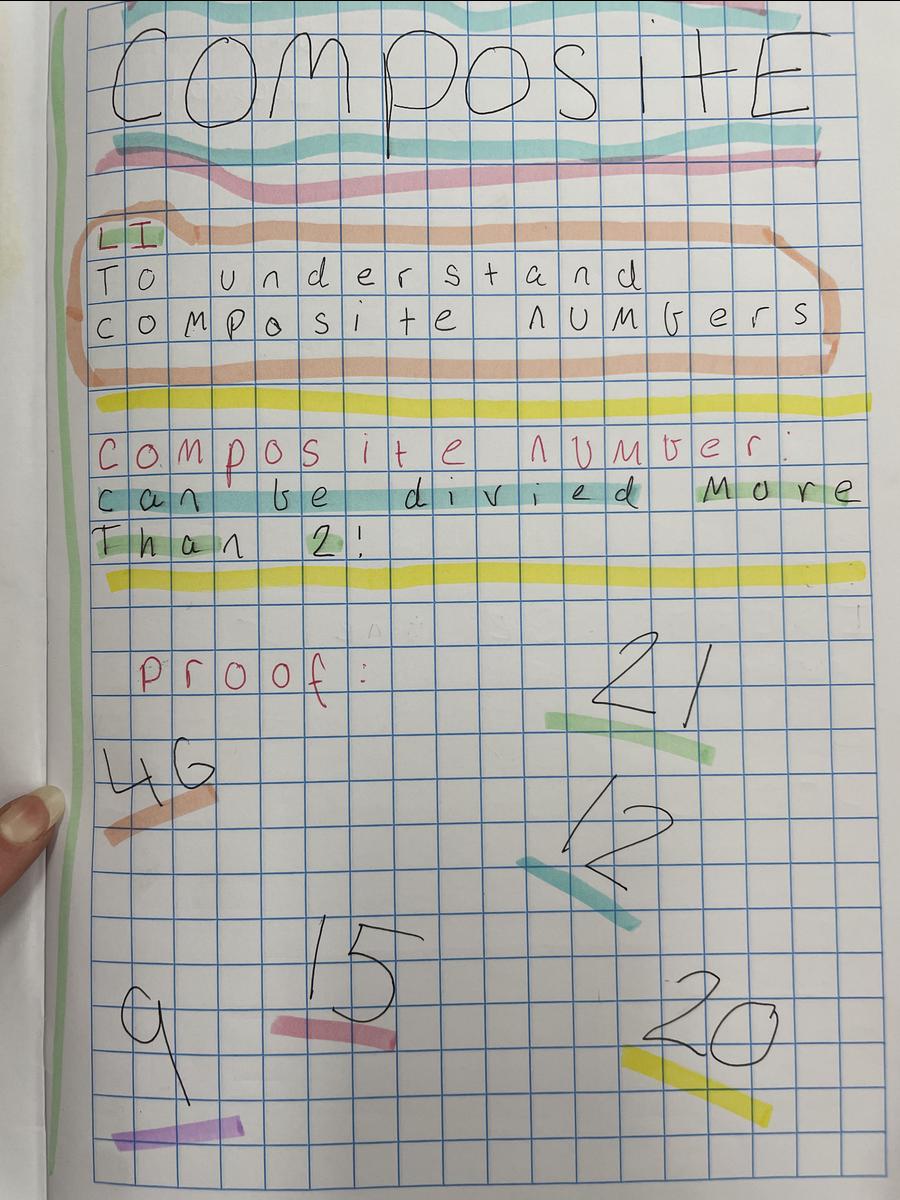 COMPOSITE
LI
To understand
composite numbers
Composite number:
can be divied more
Than 2!
Proof:
21
46
12
15
9
20